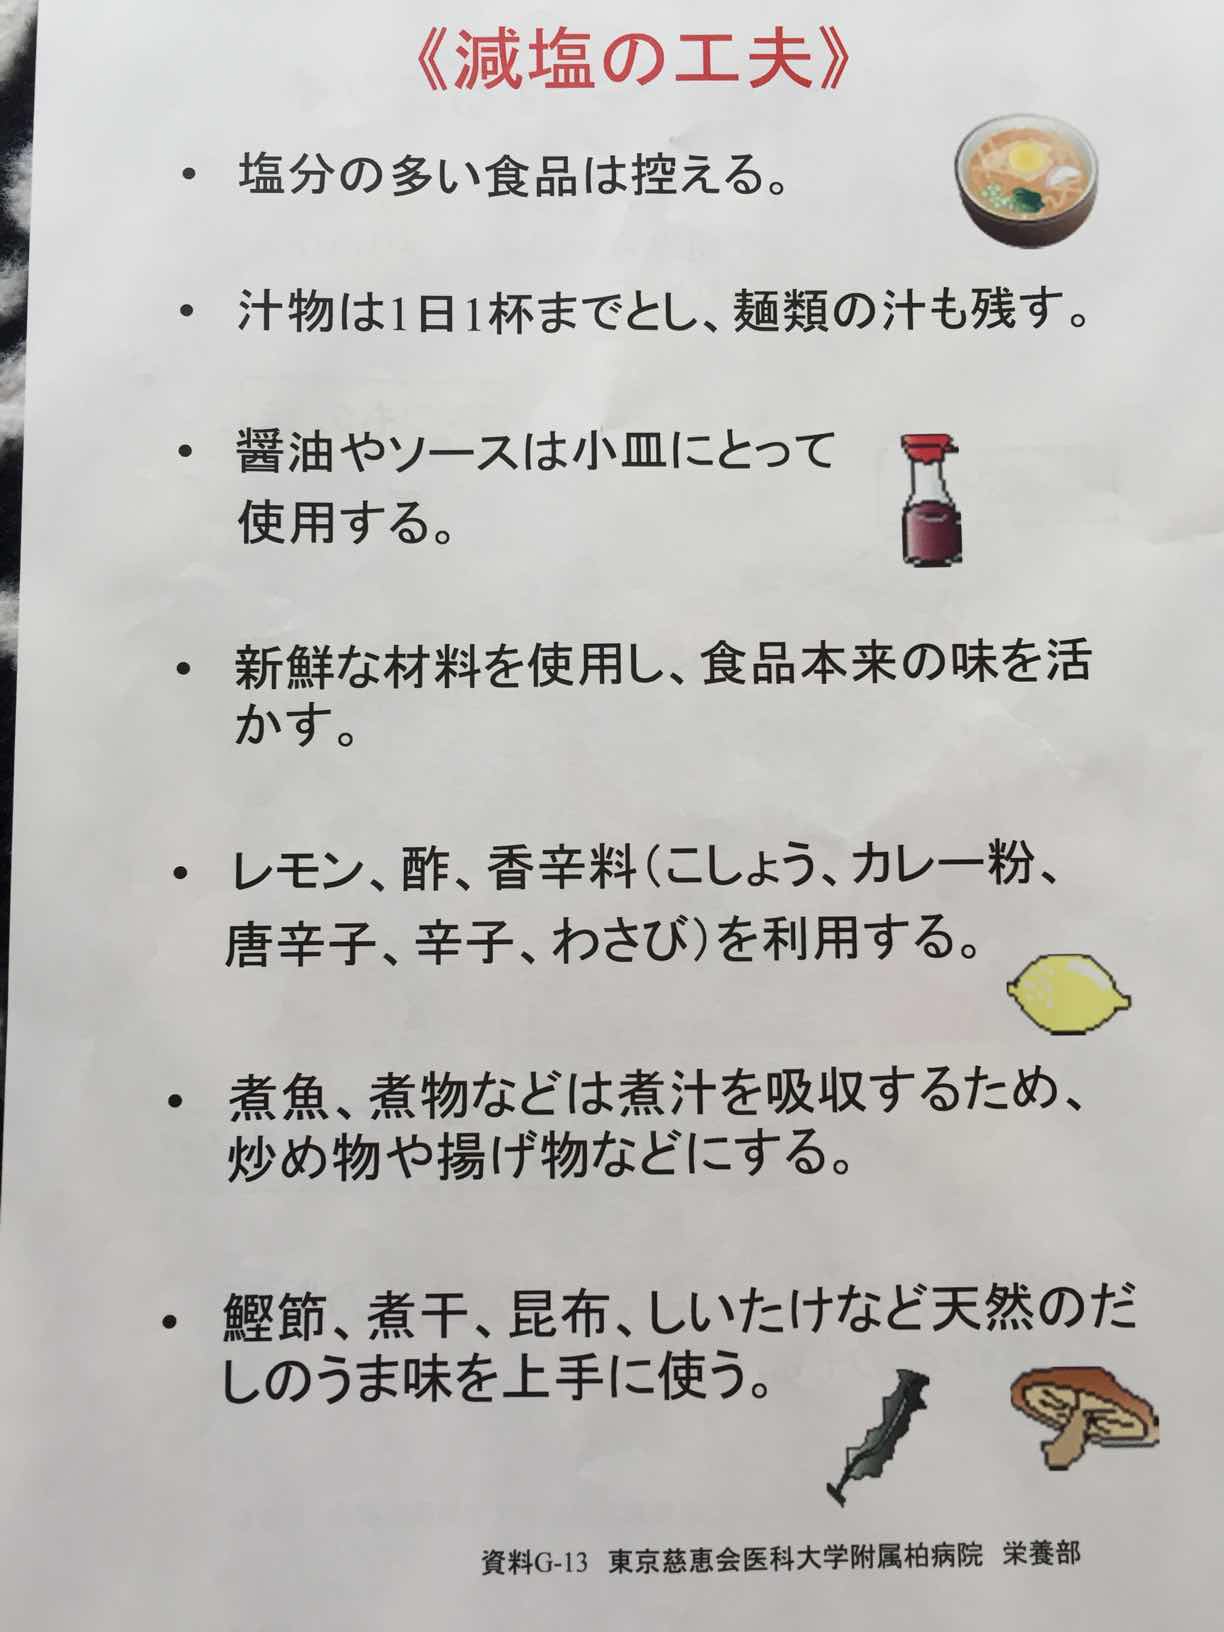 《減塩の工夫》
• 塩分の多い食品は控える。
• 汁物は1日1杯までとし、麺類の汁も残す。
• 醤油やソースは小皿にとって
使用する。
• 新鮮な材料を使用し、食品本来の味を活
かす。
• レモン、酢、香辛料（こしょう、カレー粉、
唐辛子、辛子、わさび）を利用する。
• 煮魚、煮物などは煮汁を吸収するため、
炒め物や揚げ物などにする。
• 鰹節、煮干、昆布、しいたけなど天然のだ
しのうま味を上手に使う。
資料G-13 東京慈恵会医科大学附属柏病院 栄養部